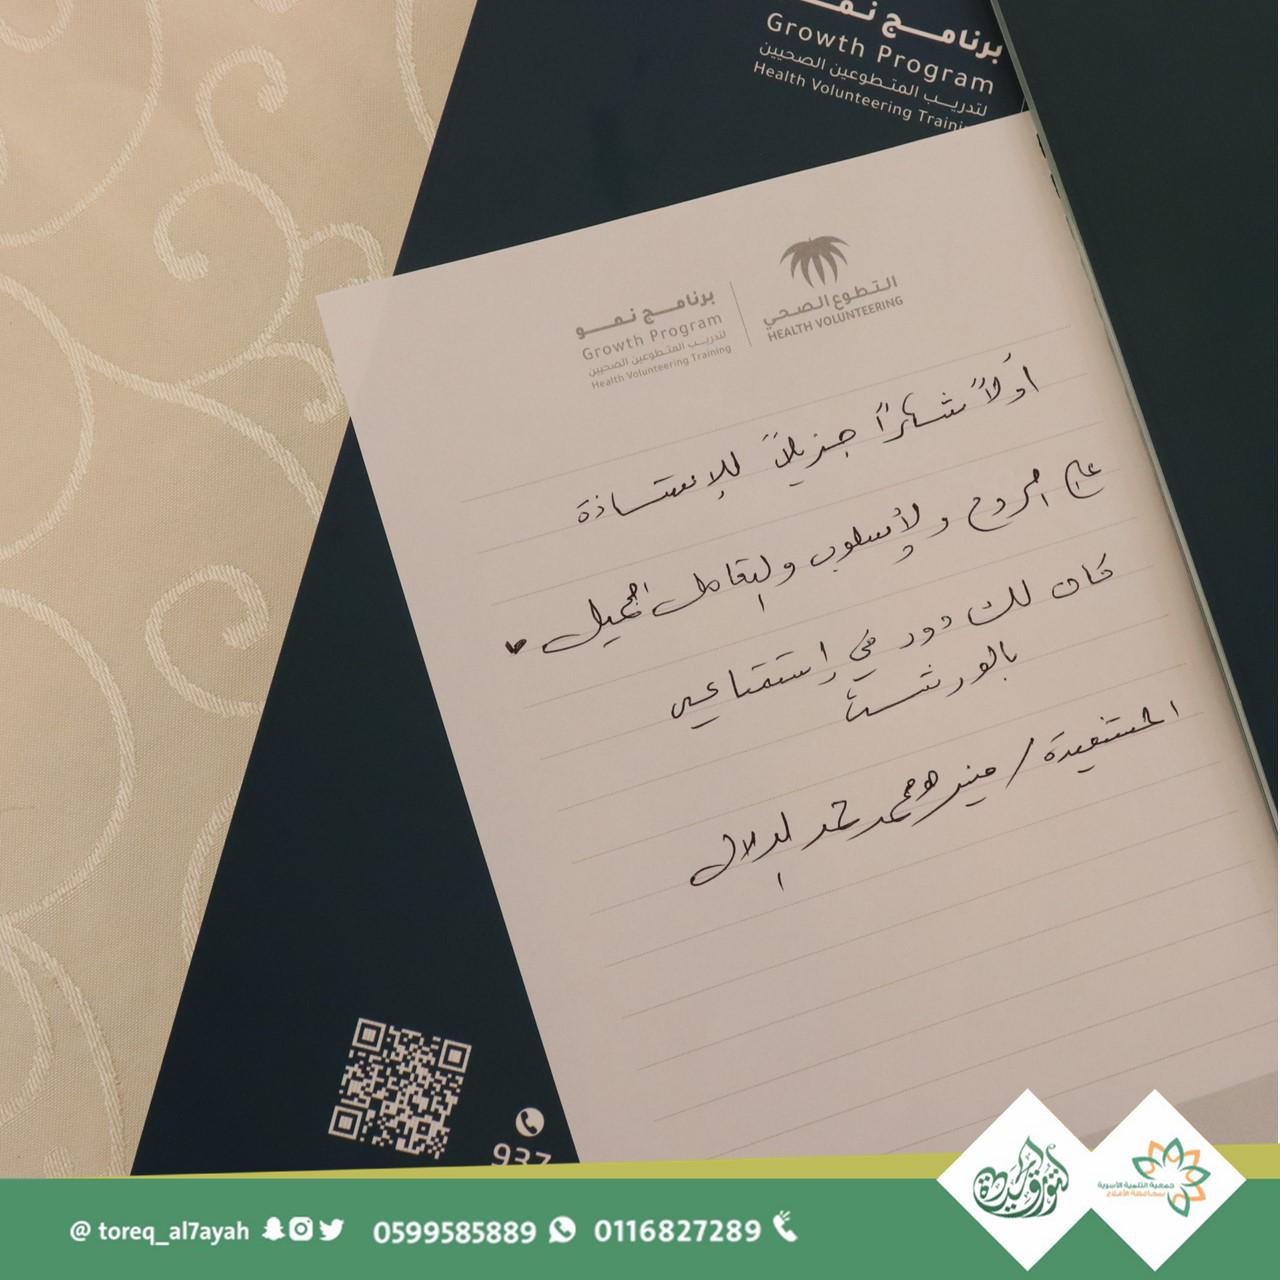 برنامج نمو
Growth Program
لتدريب المتطوعين الصحيين
Health Volunteering Training
التطوع الصحي
HEALTH VOLUNTEERING
برنامج نمو
Growth Program
لتدريب المتطوعين الصحيين
Health Volunteering Training
اولاً شكراً جزيلاً للإستاذة
على الروح والأسلوب والتعامل الجميل ♥
كان لك دور في إستمتاعي
بالورشة
المستفيدة / محمد حمد
937
جمعية التنمية الأسرية
بمحافظة الأفلاج
@ toreq_al7ayah 0599585889 0116827289